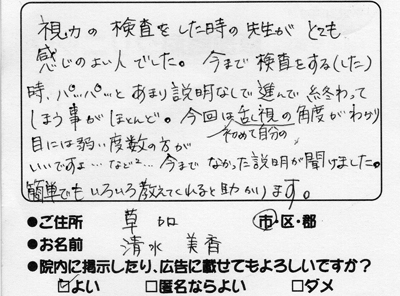 視力の検査をした時の先生がとても
感じのよい人でした。今まで検査をする(した)
時、パッパッとあまり説明なしで進んで終わって
しまう事がほとんど。今回は乱視の角度がわかり
初めて自分の
目には弱い度数の方が
いいですよ…など…今までなかった説明が聞けました。
簡単でもいろいろ教えてくれると助かります。
●ご住所 草加 市・区・郡
●お名前 清水 美香
●院内に掲示したり、広告に載せてもよろしいですか?
☑よい □匿名ならよい □ダメ